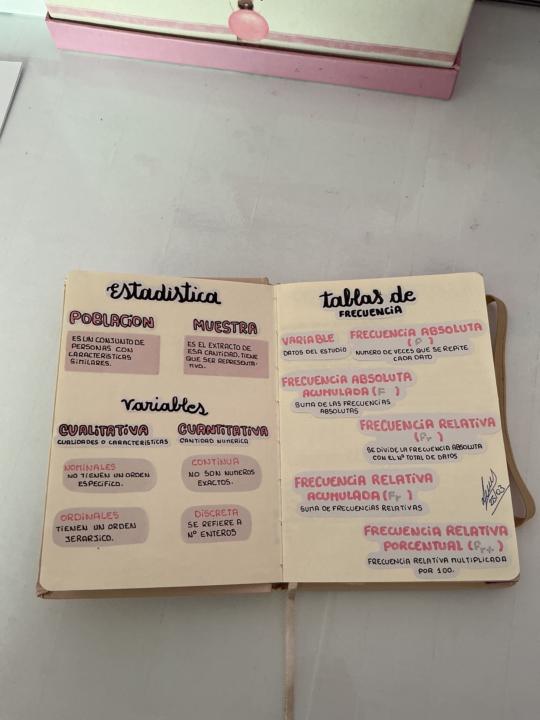 Estadística
POBLACION
ES UN CONJUNTO DE
PERSONAS CON
CARACTERISTICAS
SIMILARES.
MUESTRA
ES EL EXTRACTO DE
ESA CANTIDAD. TIENE
QUE SER REPRESENTA-
TIVO.
Variables
CUALITATIVA
CUALIDADES O CARACTERISTICAS
NOMINALES
NO TIENEN UN ORDEN
ESPECIFICO.
ORDINALES
TIENEN UN ORDEN
JERARJICO.
CUANTITATIVA
CANTIDAD NUMERICA
CONTINUA
NO SON NUMEROS
EXACTOS.
DISCRETA
SE REFIERE A
Nº ENTEROS
tablas de
FRECUENCIA
VARIABLE
DATOS DEL ESTUDIO
FRECUENCIA ABSOLUTA
(F)
NUMERO DE VECES QUE SE REPITE
CADA DATO
FRECUENCIA ABSOLUTA
ACUMULADA (F)
SUMA DE LAS FRECUENCIAS
ABSOLUTAS
FRECUENCIA RELATIVA
(Fr)
SE DIVIDE LA FRECUENCIA ABSOLUTA
CON EL Nº TOTAL DE DATOS
FRECUENCIA RELATIVA
ACUMULADA (Fr)
SUMA DE FRECUENCIAS RELATIVAS
FRECUENCIA RELATIVA
PORCENTUAL (Fr%)
FRECUENCIA RELATIVA MULTIPLICADA
POR 100.